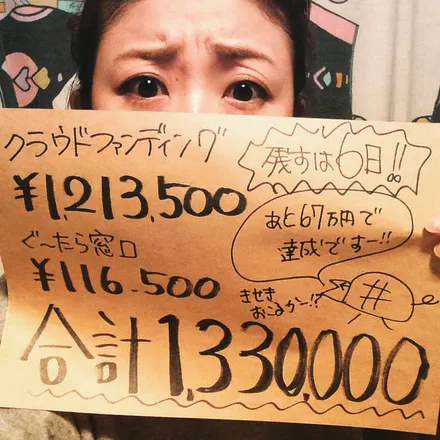 クラウドファンディング
¥1,213,500
ぐ〜たら窓口
¥116.500
残すは6日!!
あと67万円で
達成ですー!!
#
きせき
おこるかー!?
合計1,330,000